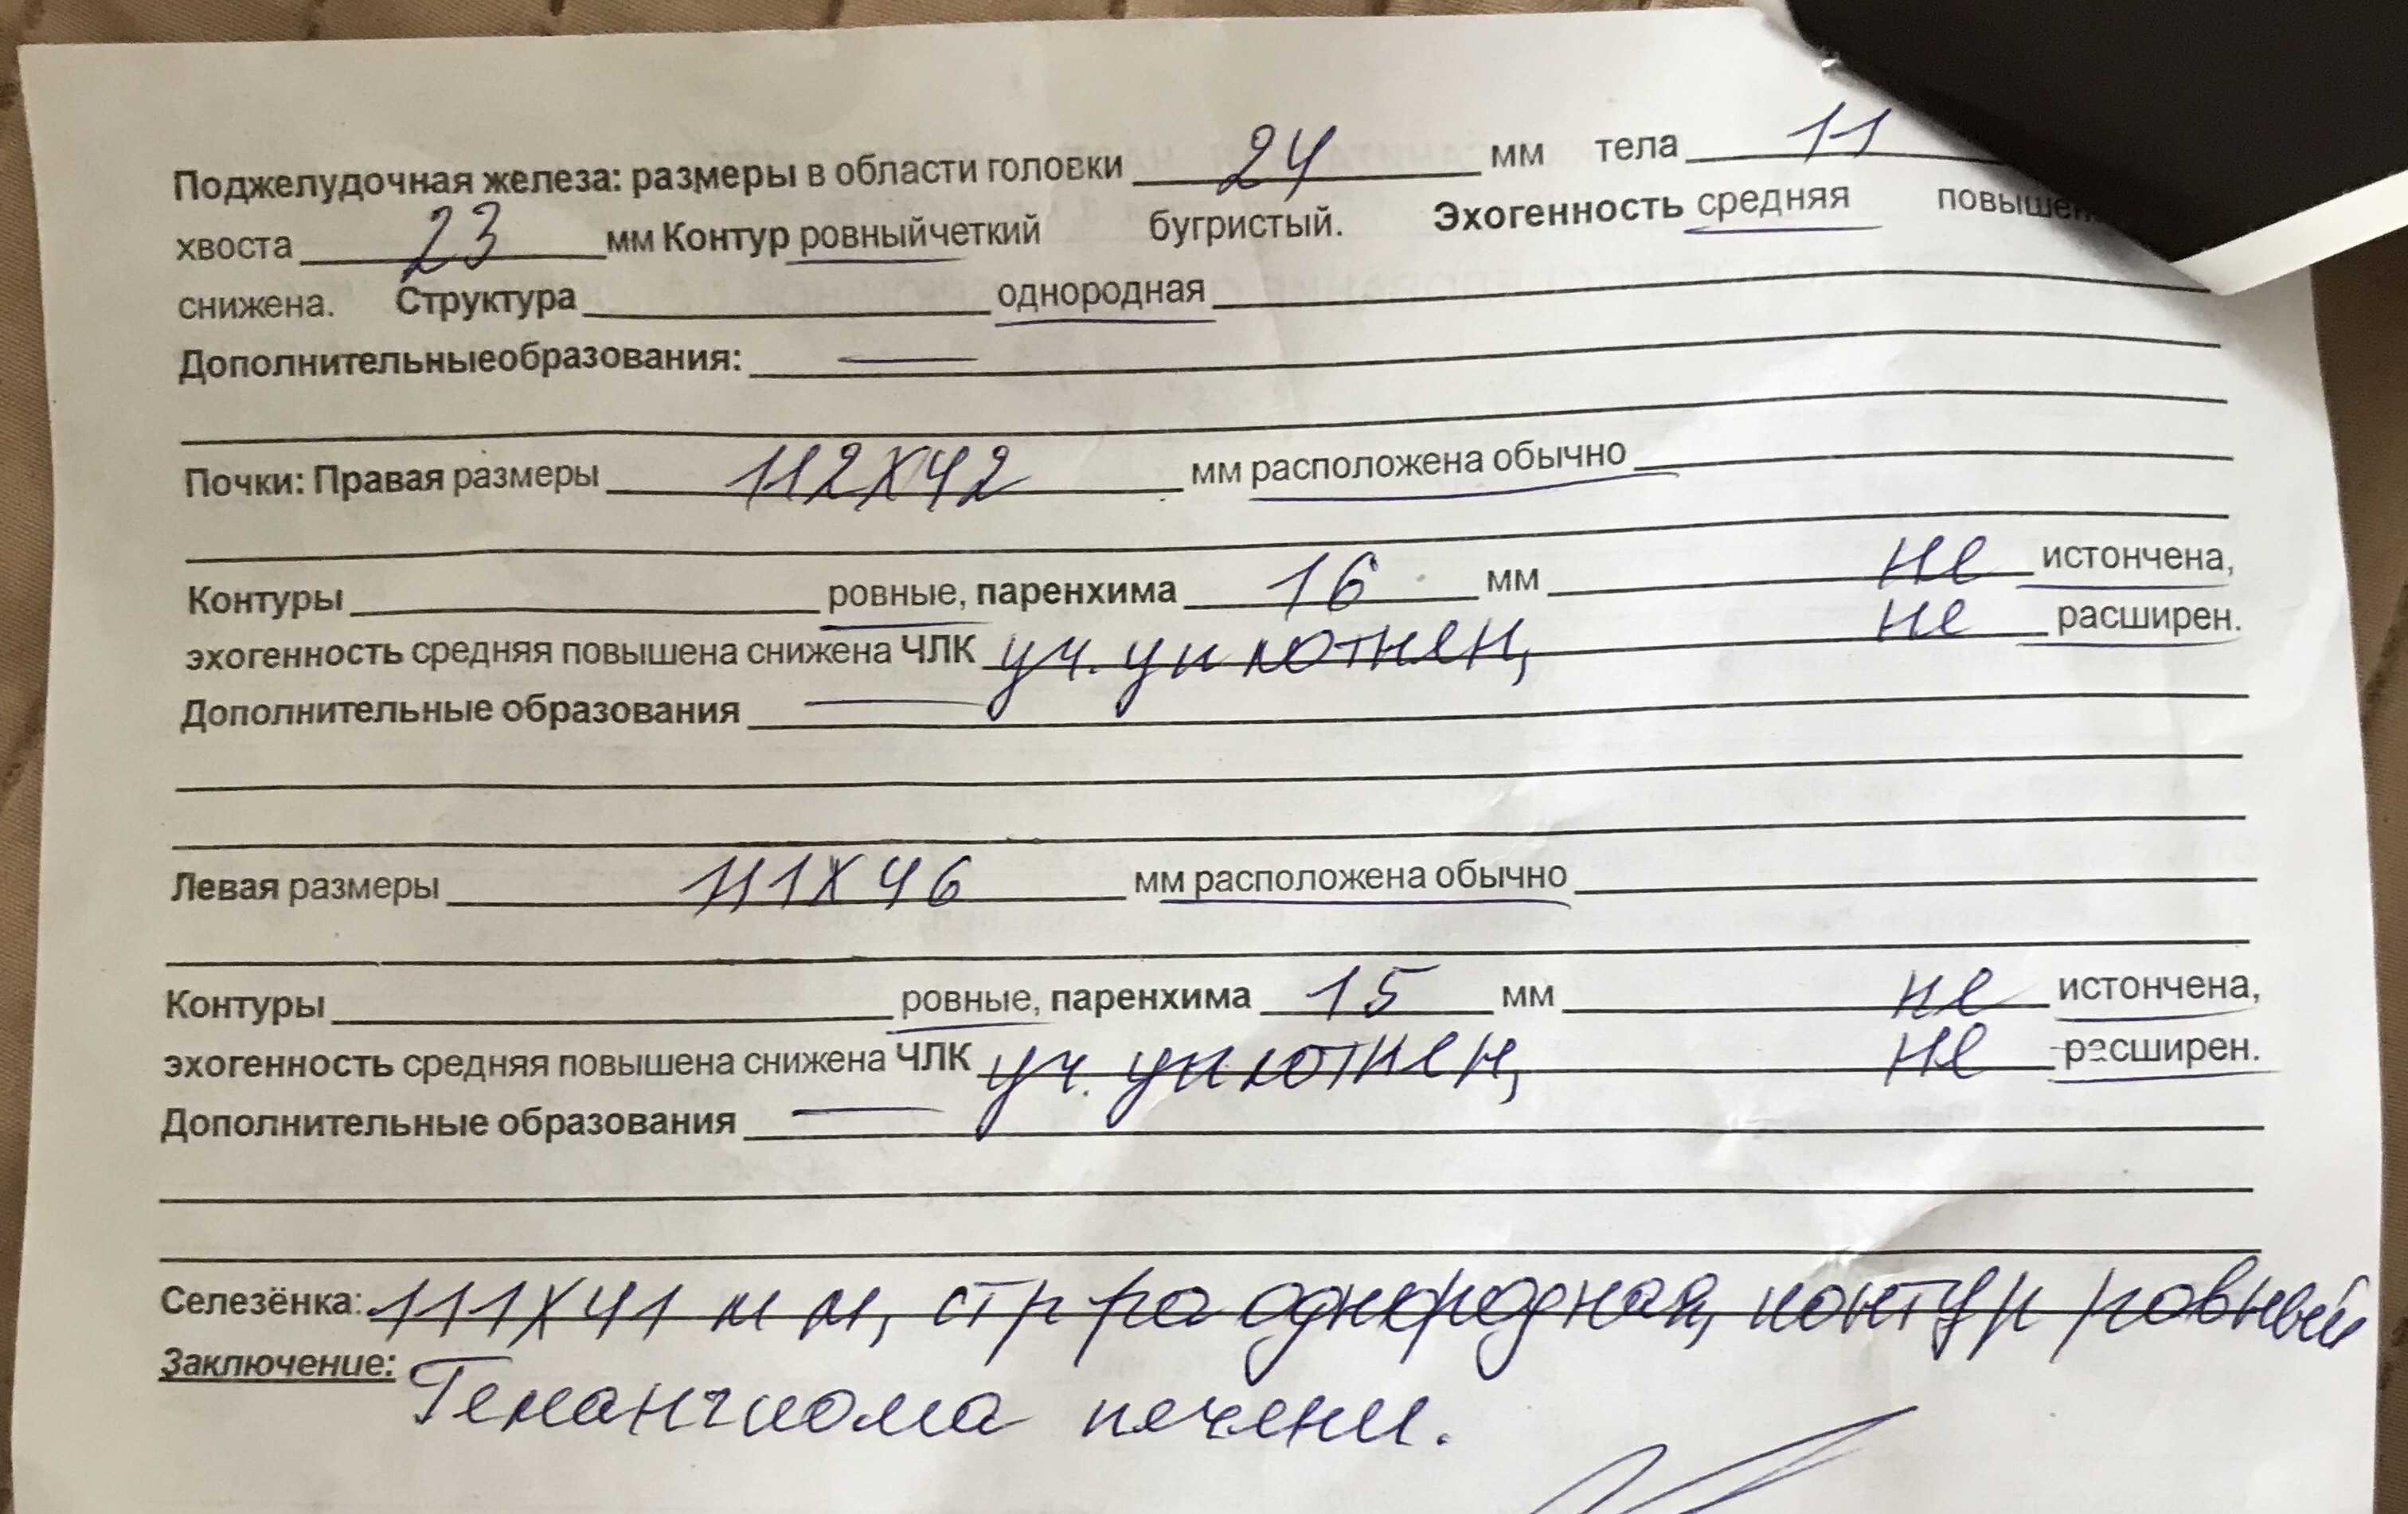 Поджелудочная железа: размеры в области головки 24 мм тела 11
хвоста 23 мм Контур ровныйчеткий бугристый. Эхогенность средняя
снижена. Структура однородная
Дополнительныеобразования: —
Почки: Правая размеры 112х42 мм расположена обычно
Контуры ровные, паренхима 16 мм не истончена,
эхогенность средняя повышена снижена ЧЛК уч. уплотнен, не расширен.
Дополнительные образования —
Левая размеры 111х46 мм расположена обычно
Контуры ровные, паренхима 15 мм не истончена,
эхогенность средняя повышена снижена ЧЛК уч. уплотнен, не расширен.
Дополнительные образования —
Селезёнка: 111х41 мм, стр ра однородная, контур ровный
Заключение: Гемангиома печени.